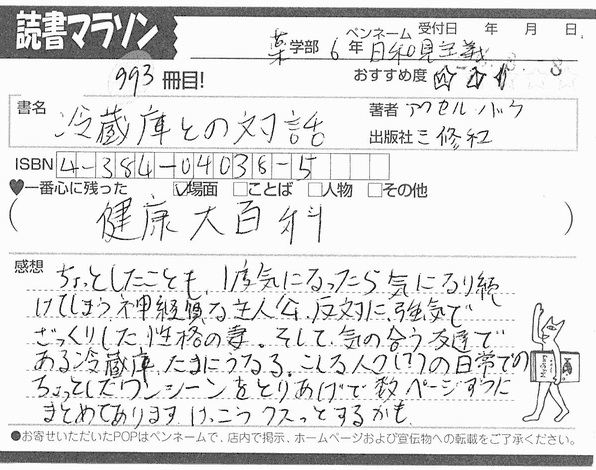 読書マラソン
ペンネーム 受付日 年 月 日
薬学部 6年 日和見主義
993冊目!
おすすめ度 ☆☆☆
書名 冷蔵庫との対話
著者 アクセル・ハッケ
出版社 三修社
ISBN 4-384-04038-5
♥一番心に残った ☑場面 □ことば □人物 □その他
(健康大百科)
感想
ちょっとしたことも、1度気になったら気になり続
けてしまう神経質な主人公、反対に、強気で
ざっくりした性格の妻。そして、気の合う友達で
ある冷蔵庫、たまにうなる。こんな人々(?)の日常での
ちょっとしたワンシーンをとりあげて数ページずつに
まとめてあります。けっこうクスっとするかも。
●お寄せいただいたPOPはペンネームで、店内で掲示、ホームページおよび宣伝物への転載をご了承ください。